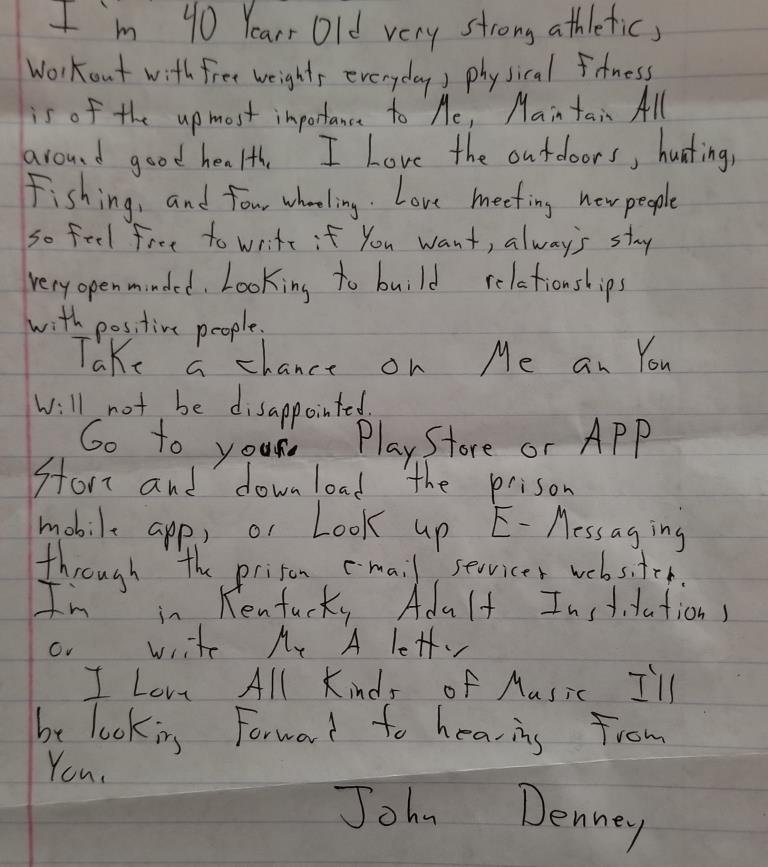 I'm 40 Years Old very strong athletic,
Workout with free weights everyday, physical Fitness
is of the upmost importance to Me, Maintain All
around good health. I Love the outdoors, hunting,
Fishing, and four wheeling. Love meeting new people
so feel free to write if You want, always stay
very open minded. Looking to build relationships
with positive people.
Take a chance on Me an You
Will not be disappointed.
Go to your PlayStore or APP
Store and download the prison
mobile app, or Look up E-Messaging
through the prison e-mail services websites.
I'm in Kentucky Adult Institutions
or write Me A letter
I Love All Kinds of Music I'll
be looking Forward to hearing From
You.
John Denney